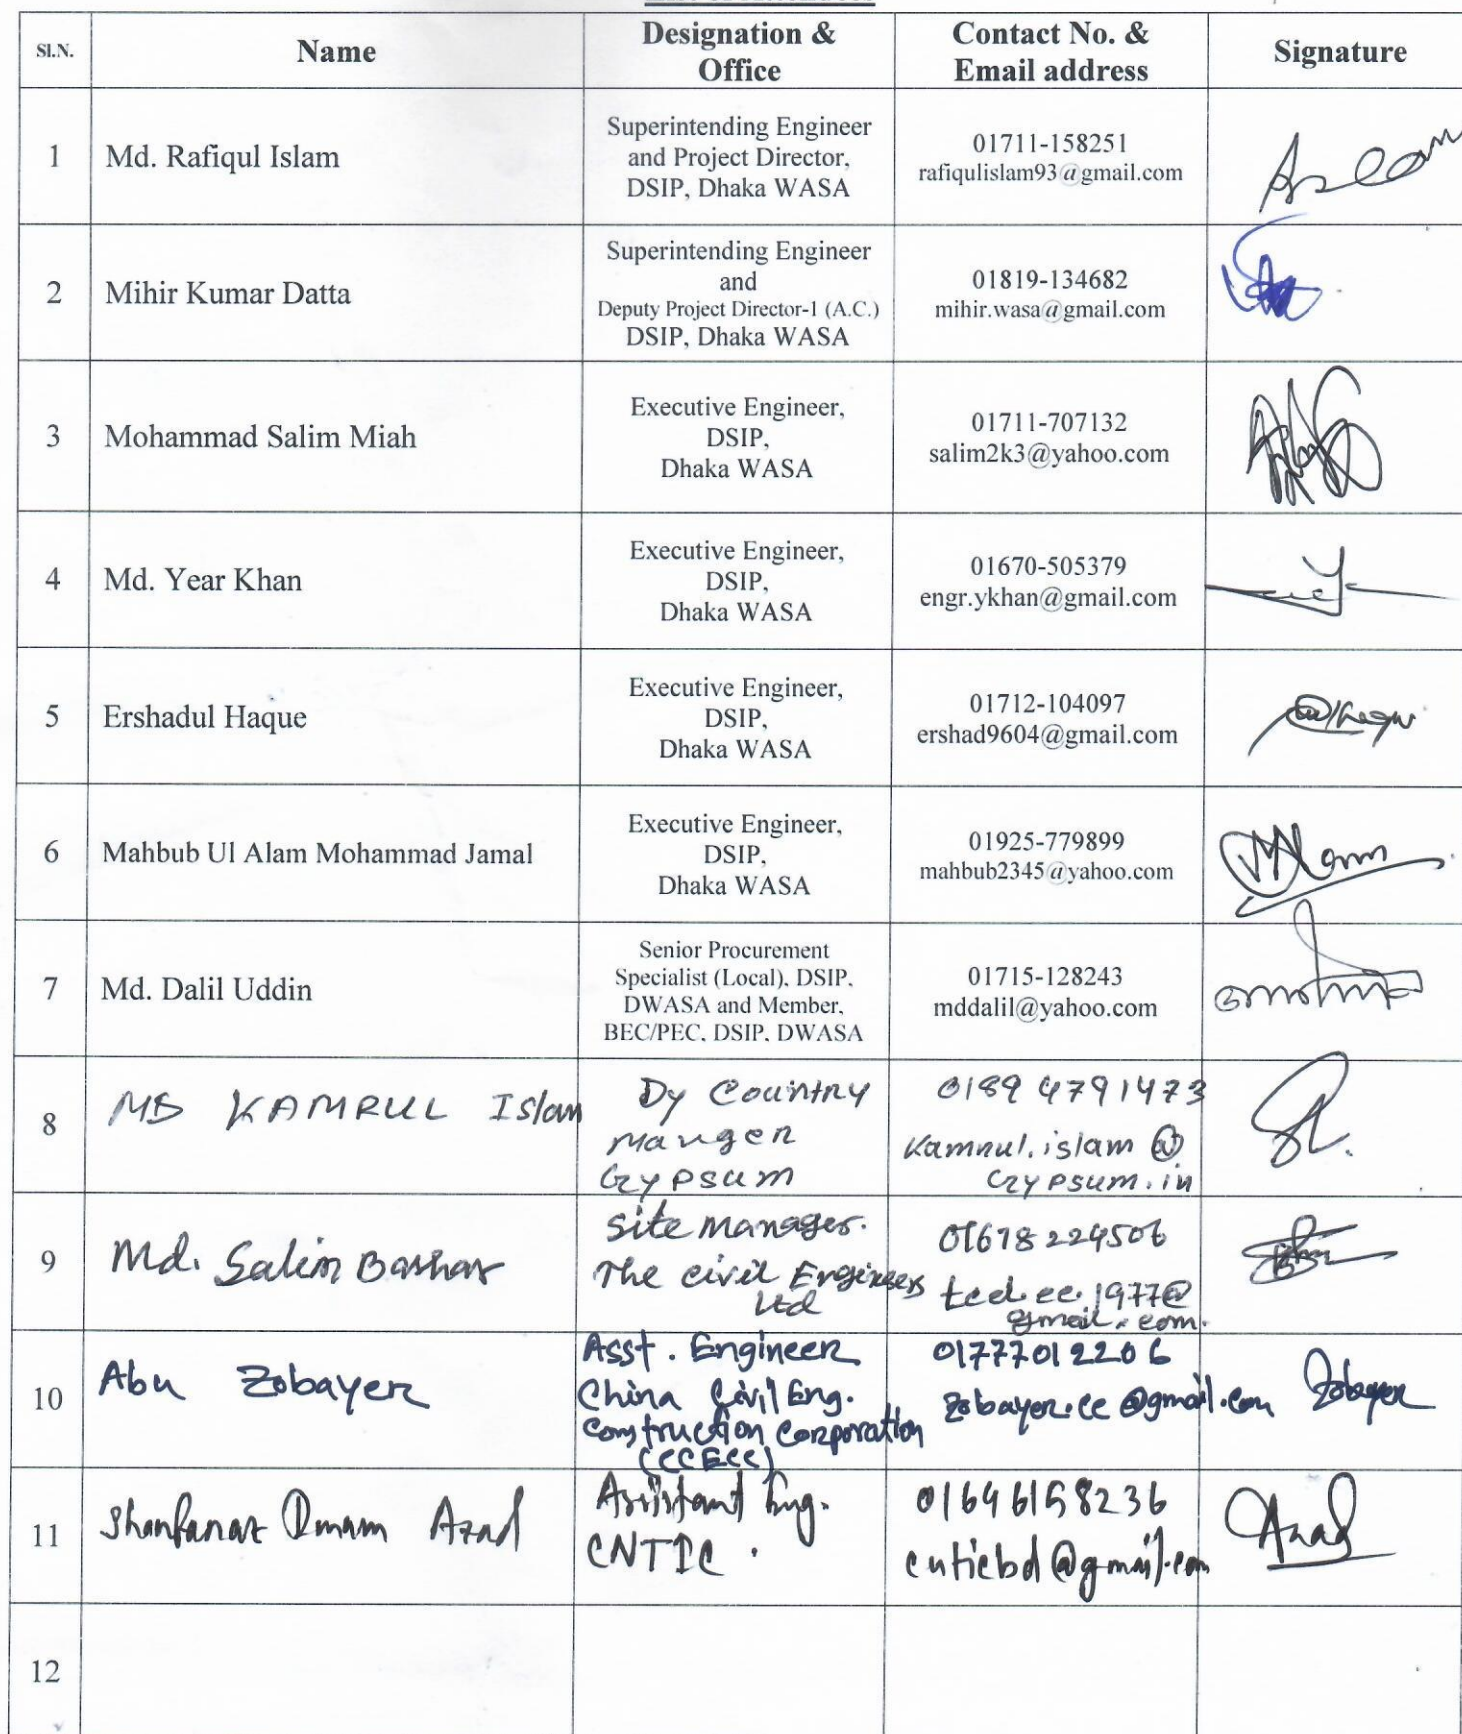 Sl.N. Name Designation & Office Contact No. & Email address Signature
1 Md. Rafiqul Islam
Superintending Engineer
and Project Director,
DSIP, Dhaka WASA
01711-158251
rafiqulislam93@gmail.com
2 Mihir Kumar Datta
Superintending Engineer
and
Deputy Project Director-1 (A.C.)
DSIP, Dhaka WASA
01819-134682
mihir.wasa@gmail.com
3 Mohammad Salim Miah
Executive Engineer,
DSIP,
Dhaka WASA
01711-707132
salim2k3@yahoo.com
4 Md. Year Khan
Executive Engineer,
DSIP,
Dhaka WASA
01670-505379
engr.ykhan@gmail.com
5 Ershadul Haque
Executive Engineer,
DSIP,
Dhaka WASA
01712-104097
ershad9604@gmail.com
6 Mahbub Ul Alam Mohammad Jamal
Executive Engineer,
DSIP,
Dhaka WASA
01925-779899
mahbub2345@yahoo.com
7 Md. Dalil Uddin
Senior Procurement
Specialist (Local), DSIP,
DWASA and Member,
BEC/PEC, DSIP, DWASA
01715-128243
mddalil@yahoo.com
8 MD KAMRUL Islam
Dy Country
Manger
Gypsum
01894791473
kamrul.islam@
Gypsum.in
9 Md. Salim Bashar
Site Manager.
The Civil Engineers
Ltd
01678224506
gmail.com.
10 Abu Zobayer
Asst. Engineer
China Civil Eng.
Construction Corporation
(CCECC)
01777012206
zobayer.ce@gmail.com
Zobayer
11 Imam Azad
Assistant Eng.
CNTIC.
01646158236
cnticbd@gmail.com
Azad
12